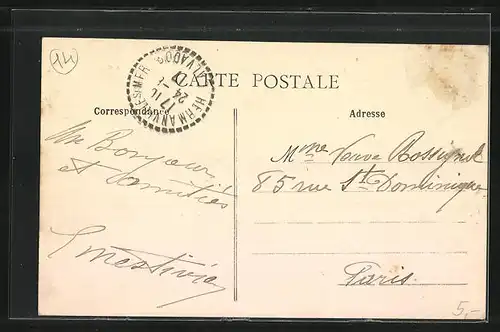 14
CARTE POSTALE
HERMANVILLE-S-MER
CALVADOS
17 - 11
24 - 7
17
Correspondance
Adresse
Un Bonjour
et Amitiés
Mme Veuve Rossignol
85 rue St Dominique
Paris
5,-